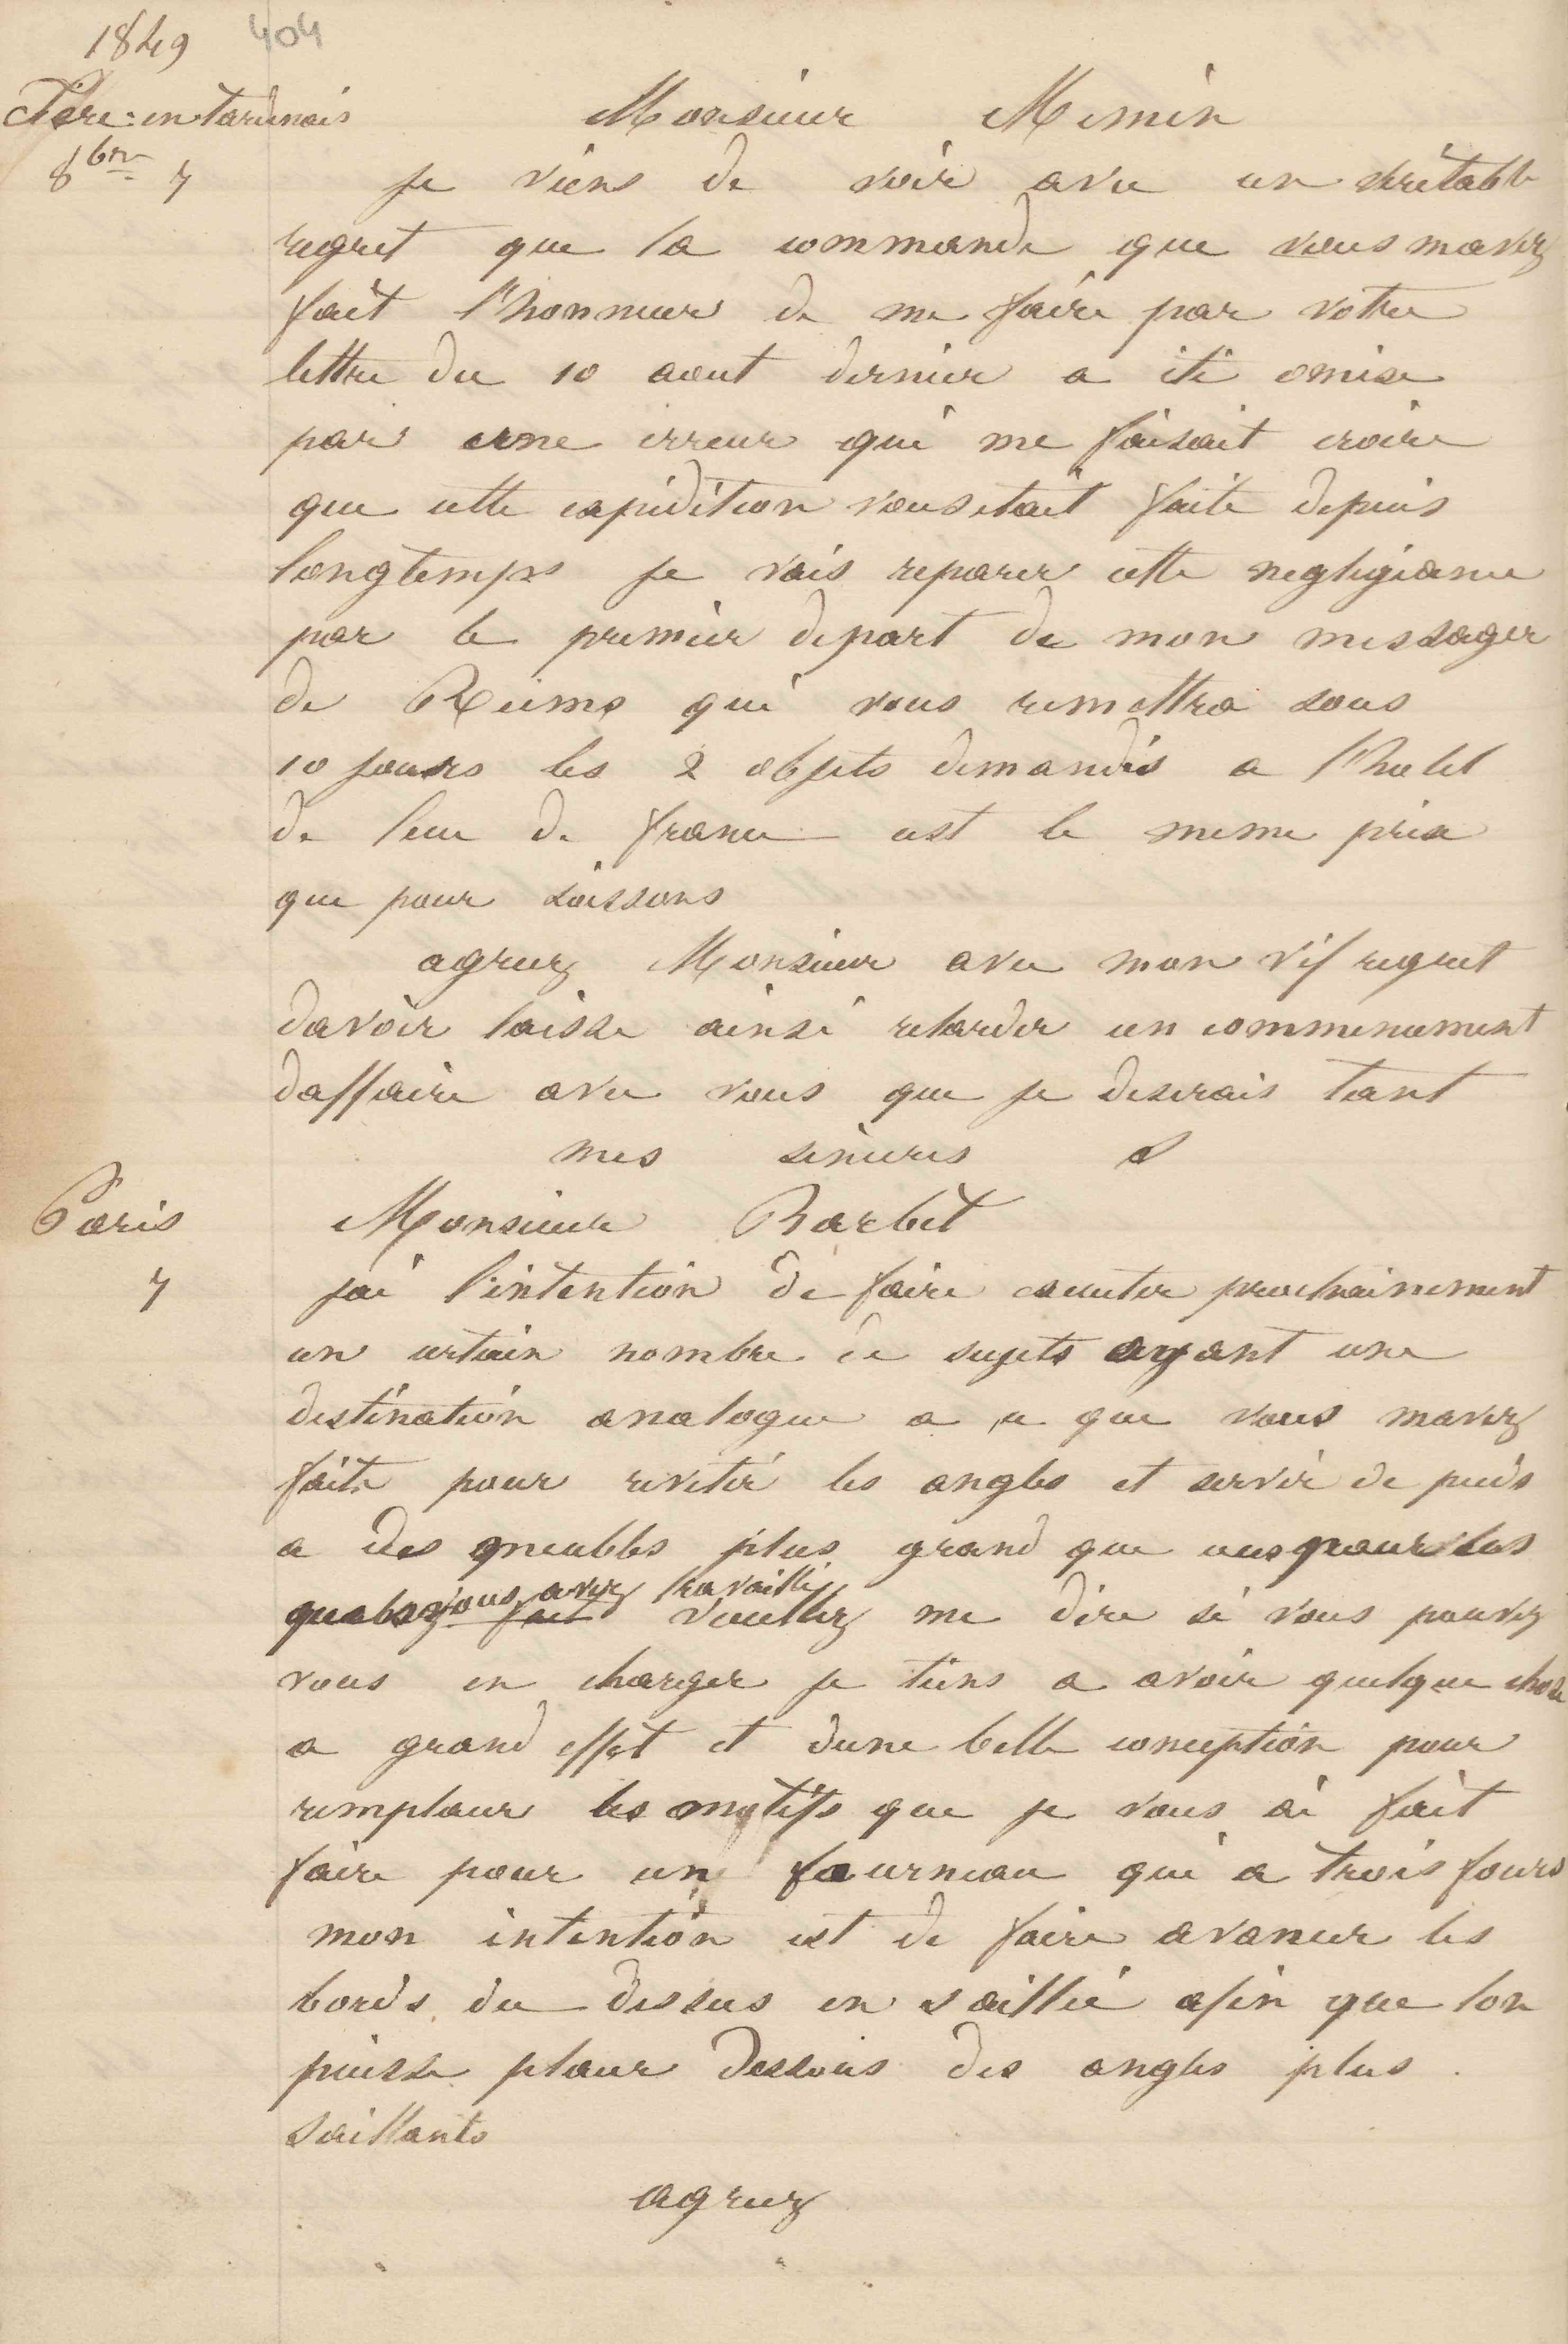 1849 404
Fère-en tardenois
8bre 7
Monsieur Memin
je viens de voir avec un veritable
regret que la commande que vous mavez
fait l'honneur de me faire par votre
lettre du 10 aout dernier a été omise
par une erreur qui me faisait croire
que cette expédition vous etait faite depuis
longtemps je vais reparer cette negligeance
par le premier depart de mon messager
de Reims qui vous remettra sous
10 jours les 2 objets demandés a l'hotel
de leue de france cest le meme prix
que pour soissons
agreez Monsieur avec mon vif regret
davoir laisse ainsi retarder un commencement
daffaire avec vous que je desirais tant
mes sinceres S
Paris
7
Monsieur Barbet
jai l'intention de faire executer prochainement
un certain nombre de sujets ayant une
destination analogue a ce que vous mavez
faite pour revetir les angles et servir de pieds
a des meubles plus grand que ceux pour les
quels vous avez travaillé
fait veuillez me dire si vous pouvez
vous en charger je tiens a avoir quelque chose
a grand effet et dune belle conception pour
remplacer les motifs que je vous ai fait
faire pour un fourneau qui a trois fours
mon intention est de faire avancer les
bords du dessus en saillie afin que lon
puisse placer dessous des angles plus
saillants
agreez